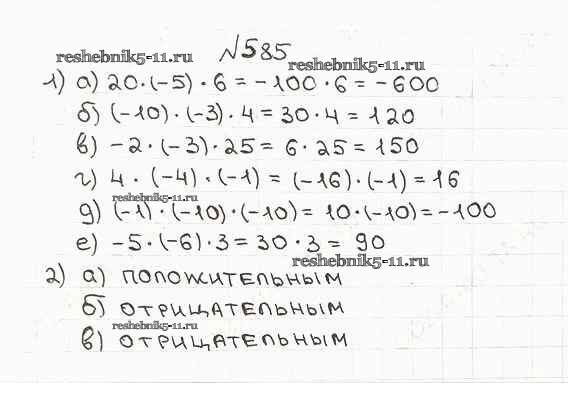 №585
reshebnik5-11.ru
reshebnik5-11.ru
1) а) 20·(-5)·6=-100·6=-600
б) (-10)·(-3)·4=30·4=120
в) -2·(-3)·25=6·25=150
г) 4·(-4)·(-1)=(-16)·(-1)=16
reshebnik5-11.ru
д) (-1)·(-10)·(-10)=10·(-10)=-100
е) -5·(-6)·3=30·3=90
reshebnik5-11.ru
2) а) положительным
б) отрицательным
reshebnik5-11.ru
в) отрицательным